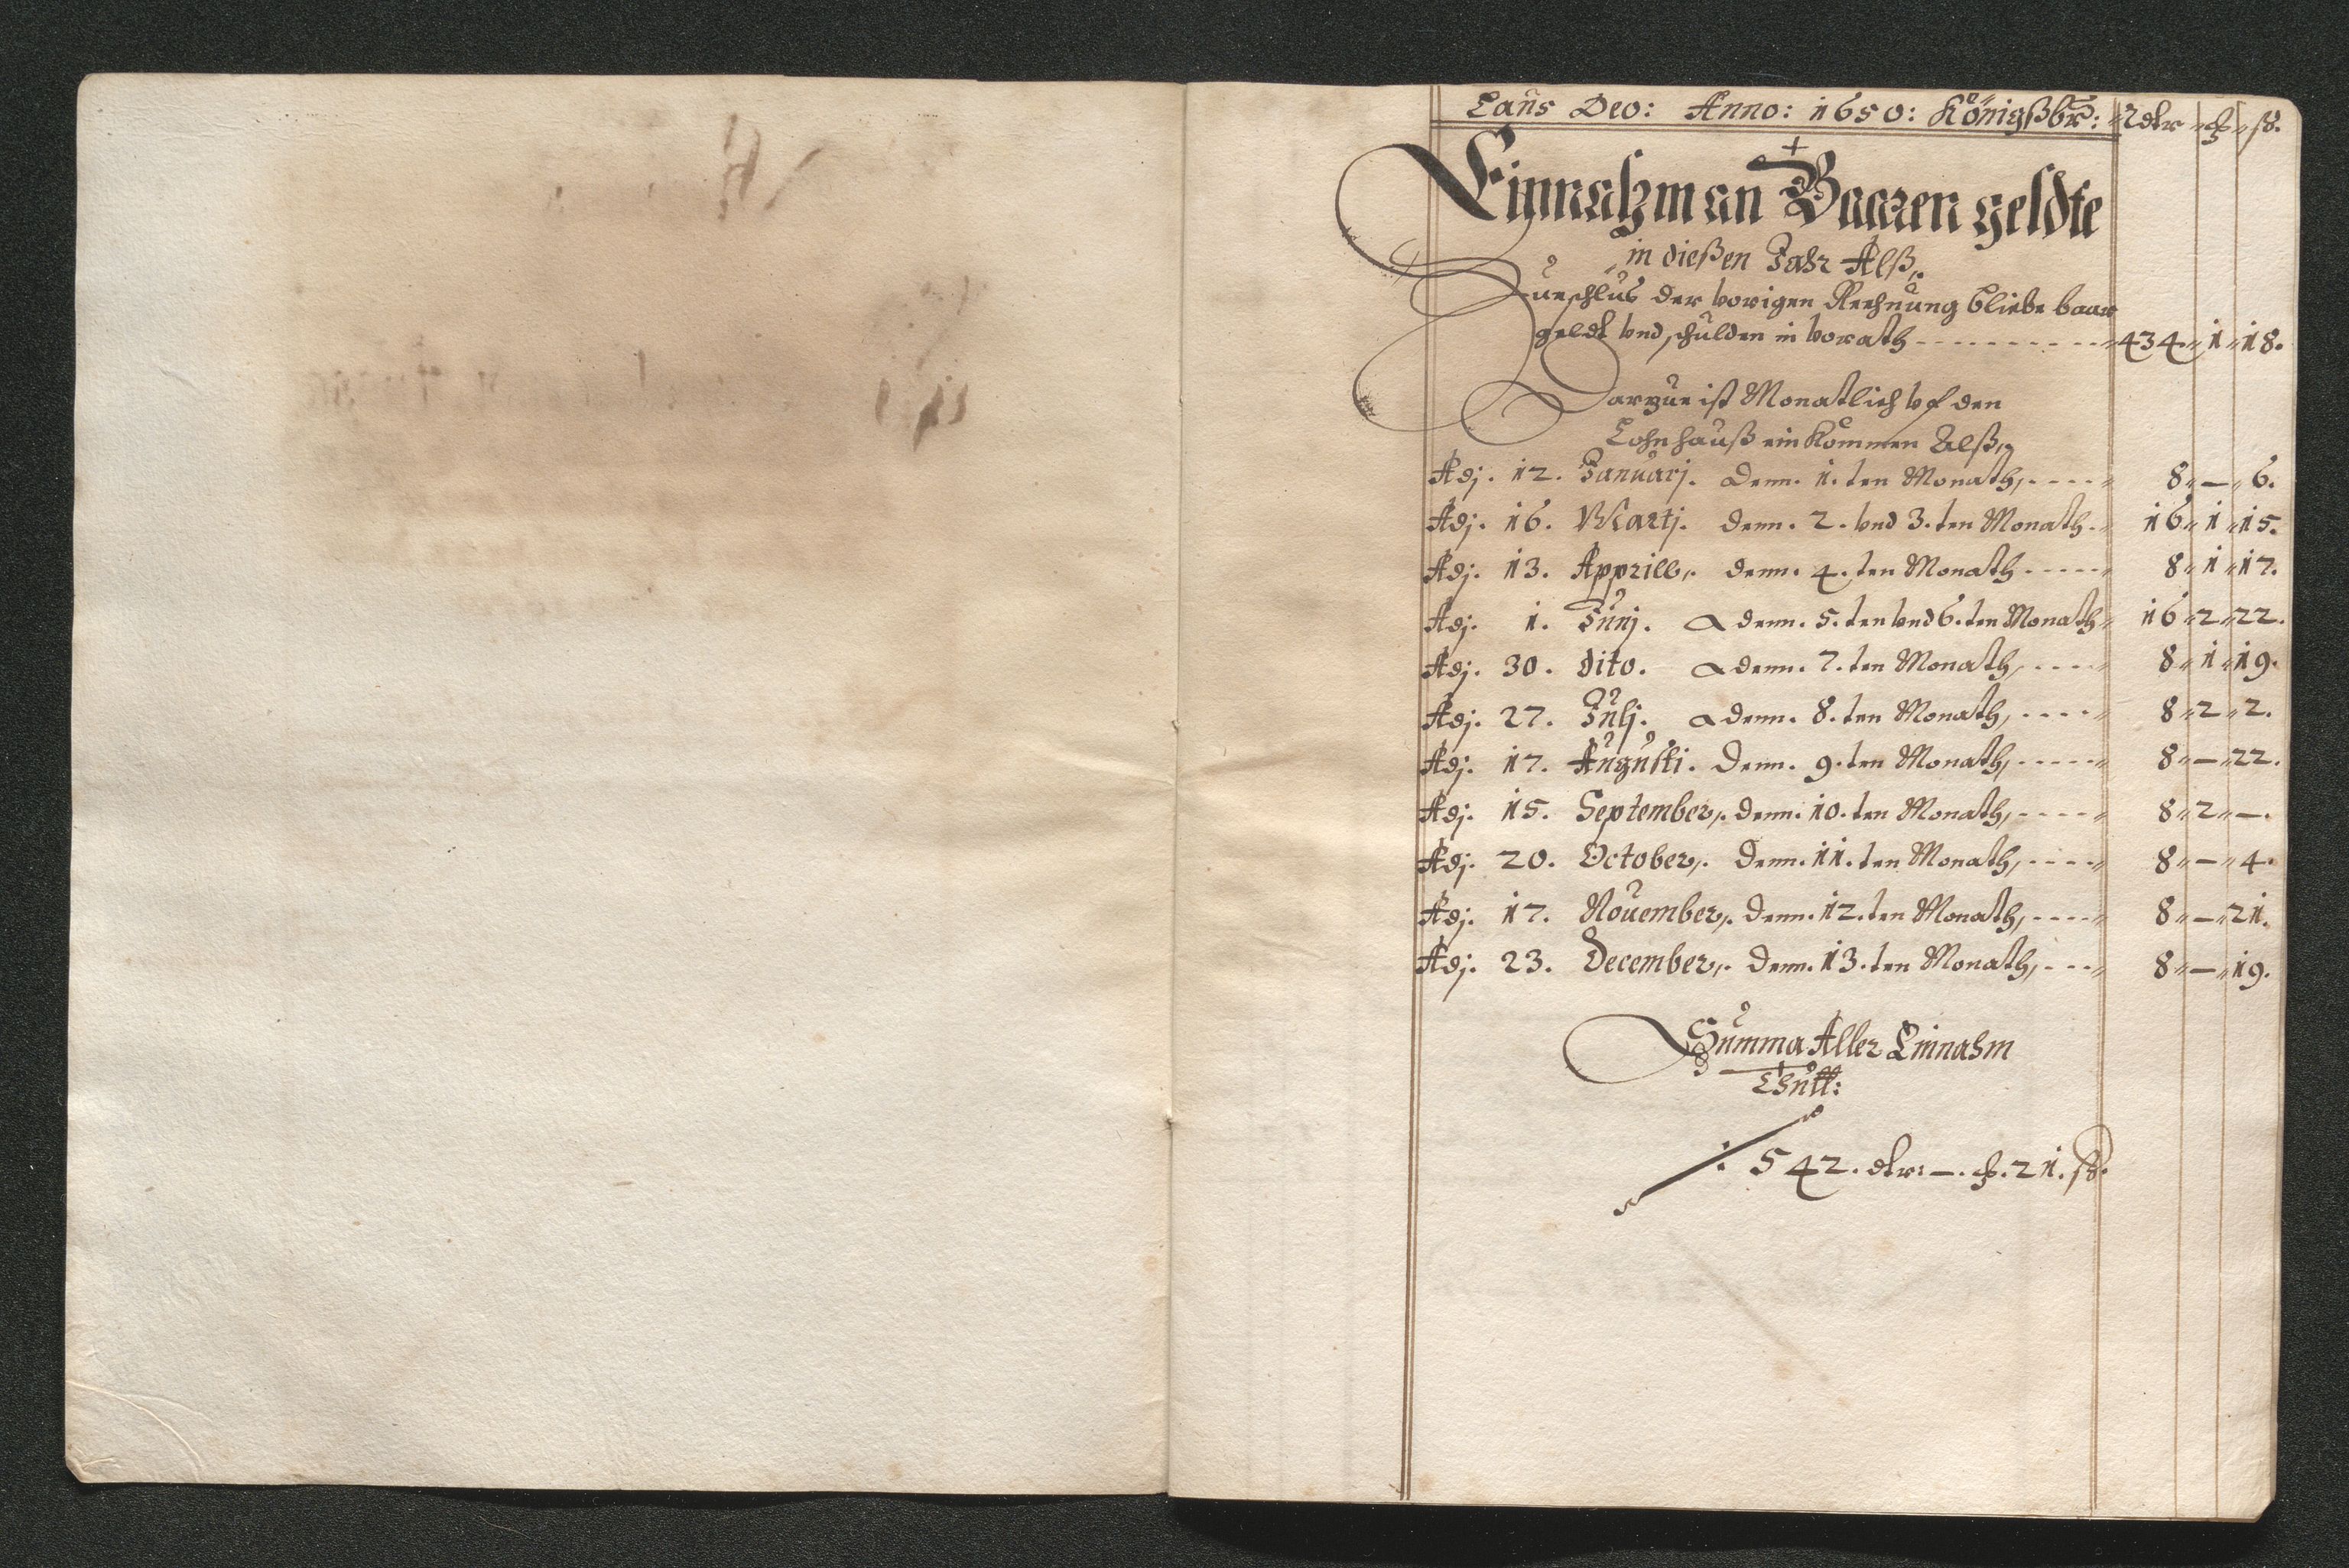 Laus Deo: Anno: 1650: Königßbr: Rdlr ß.
Einnahm an Baaren geldte
in dießen Jahr Alß,
Zueschlus der vorigen Rechnung bliebe baar
geldt vnd schulden in vorath - - - - - - - - - - 434 " 1 " 18.
Darzue ist Monatlich vf den
Lohnhauß ein Kommen Alß,
Adj. 12. Januarj. denn. 1. ten Monath, - - - - 8 " — " 6.
Adj. 16. Martj. denn. 2. vnd 3. ten Monath. 16 " 1 " 15.
Adj. 13. Apprill,. denn. 4. ten Monath - - - - - 8 " 1 " 17.
Adj. 1. Junj. a denn. 5. ten vnd 6. ten Monath 16 " 2 " 22.
Adj. 30. dito. a denn. 7. ten Monath, - - - - 8 " 1 " 19.
Adj. 27. Julj. a denn. 8. ten Monath, - - - - 8 " 2 " 2.
Adj. 17. Augusti. denn. 9. ten Monath, - - - - - 8 " — " 22.
Adj. 15. September,. denn. 10. ten Monath, - - - - - 8 " 2 " —.
Adj. 20. October,. denn. 11. ten Monath, - - - - 8 " — " 4.
Adj. 17. Nouember,. denn. 12. ten Monath, - - - - 8 " — " 21.
Adj. 23. December,. denn. 13. ten Monath, - - - 8 " — " 19.
Summa Aller Einnahm
Thutt:
: 542. dlr: —. 21. ß.